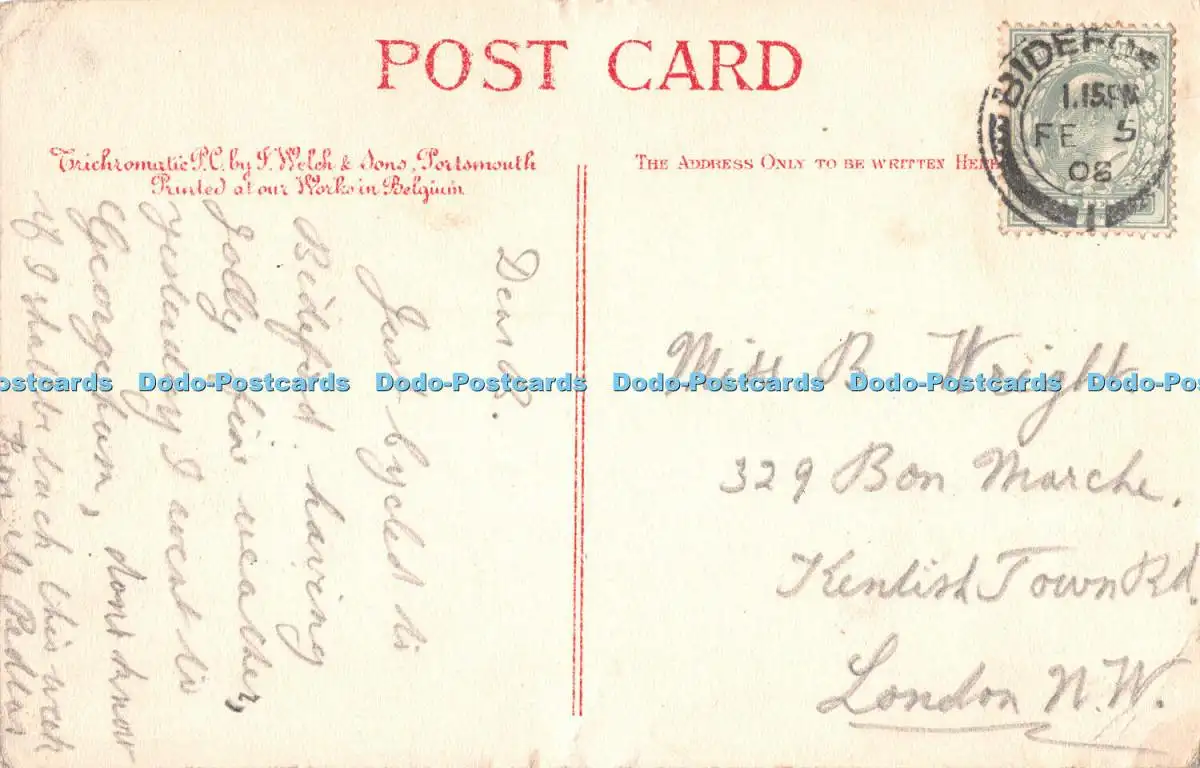 POST CARD
Trichromatic P.C. by F. Welch & Sons, Portsmouth
Printed at our Works in Belgium
THE ADDRESS ONLY TO BE WRITTEN HERE
BIDEFOR
1.15PM
FE 5
08
1
Dear B.
Just cycled to
Bideford. having
Jolly fair weather,
yesterday I went to
Georgeham, dont know
if I shall be back this week
Miss B Wright
329 Bon Marche,
Kentish Town Rd.
London N.W.
Dodo-Postcards Dodo-Postcards Dodo-Postcards Dodo-Postcards Dodo-Postcards